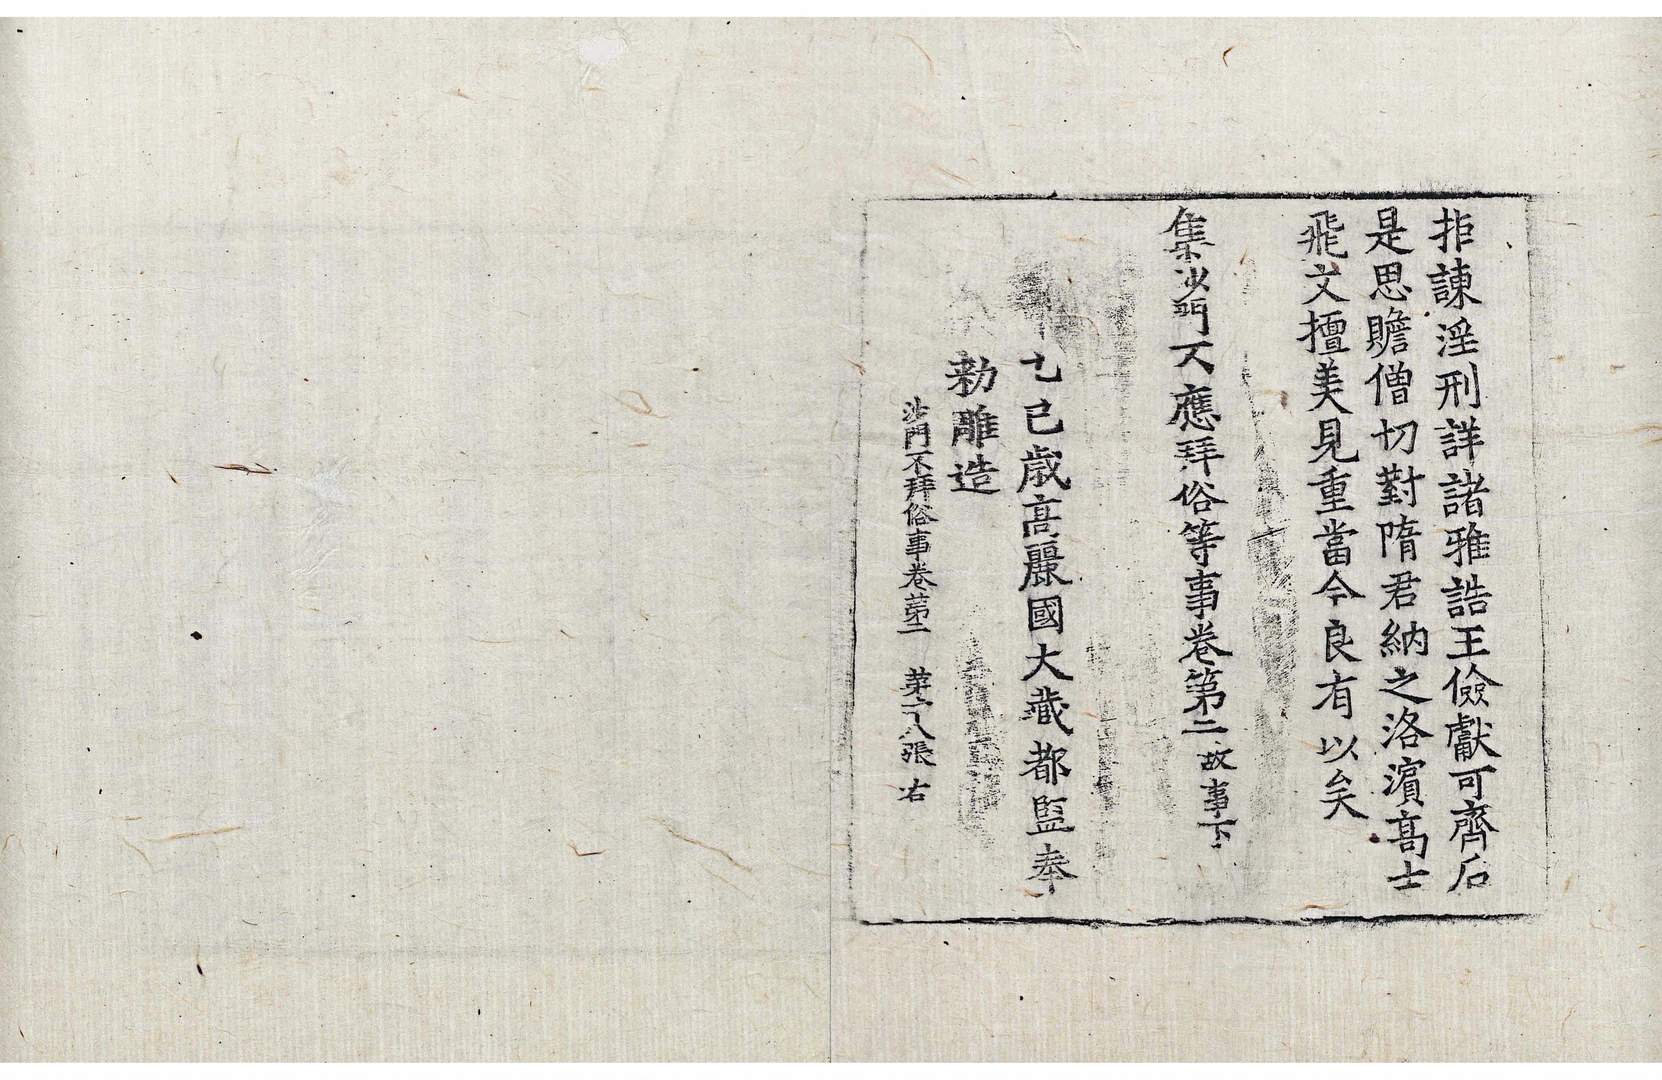 拒諫淫刑詳諸雅誥王儉獻可齊后
是思贍僧切對隋君納之洛濱高士
飛文擅美見重當今良有以矣
集沙門不應拜俗等事卷第二 故事下
乙巳歲高麗國大藏都監奉
勅雕造
沙門不拜俗事卷第二 第二八張 右